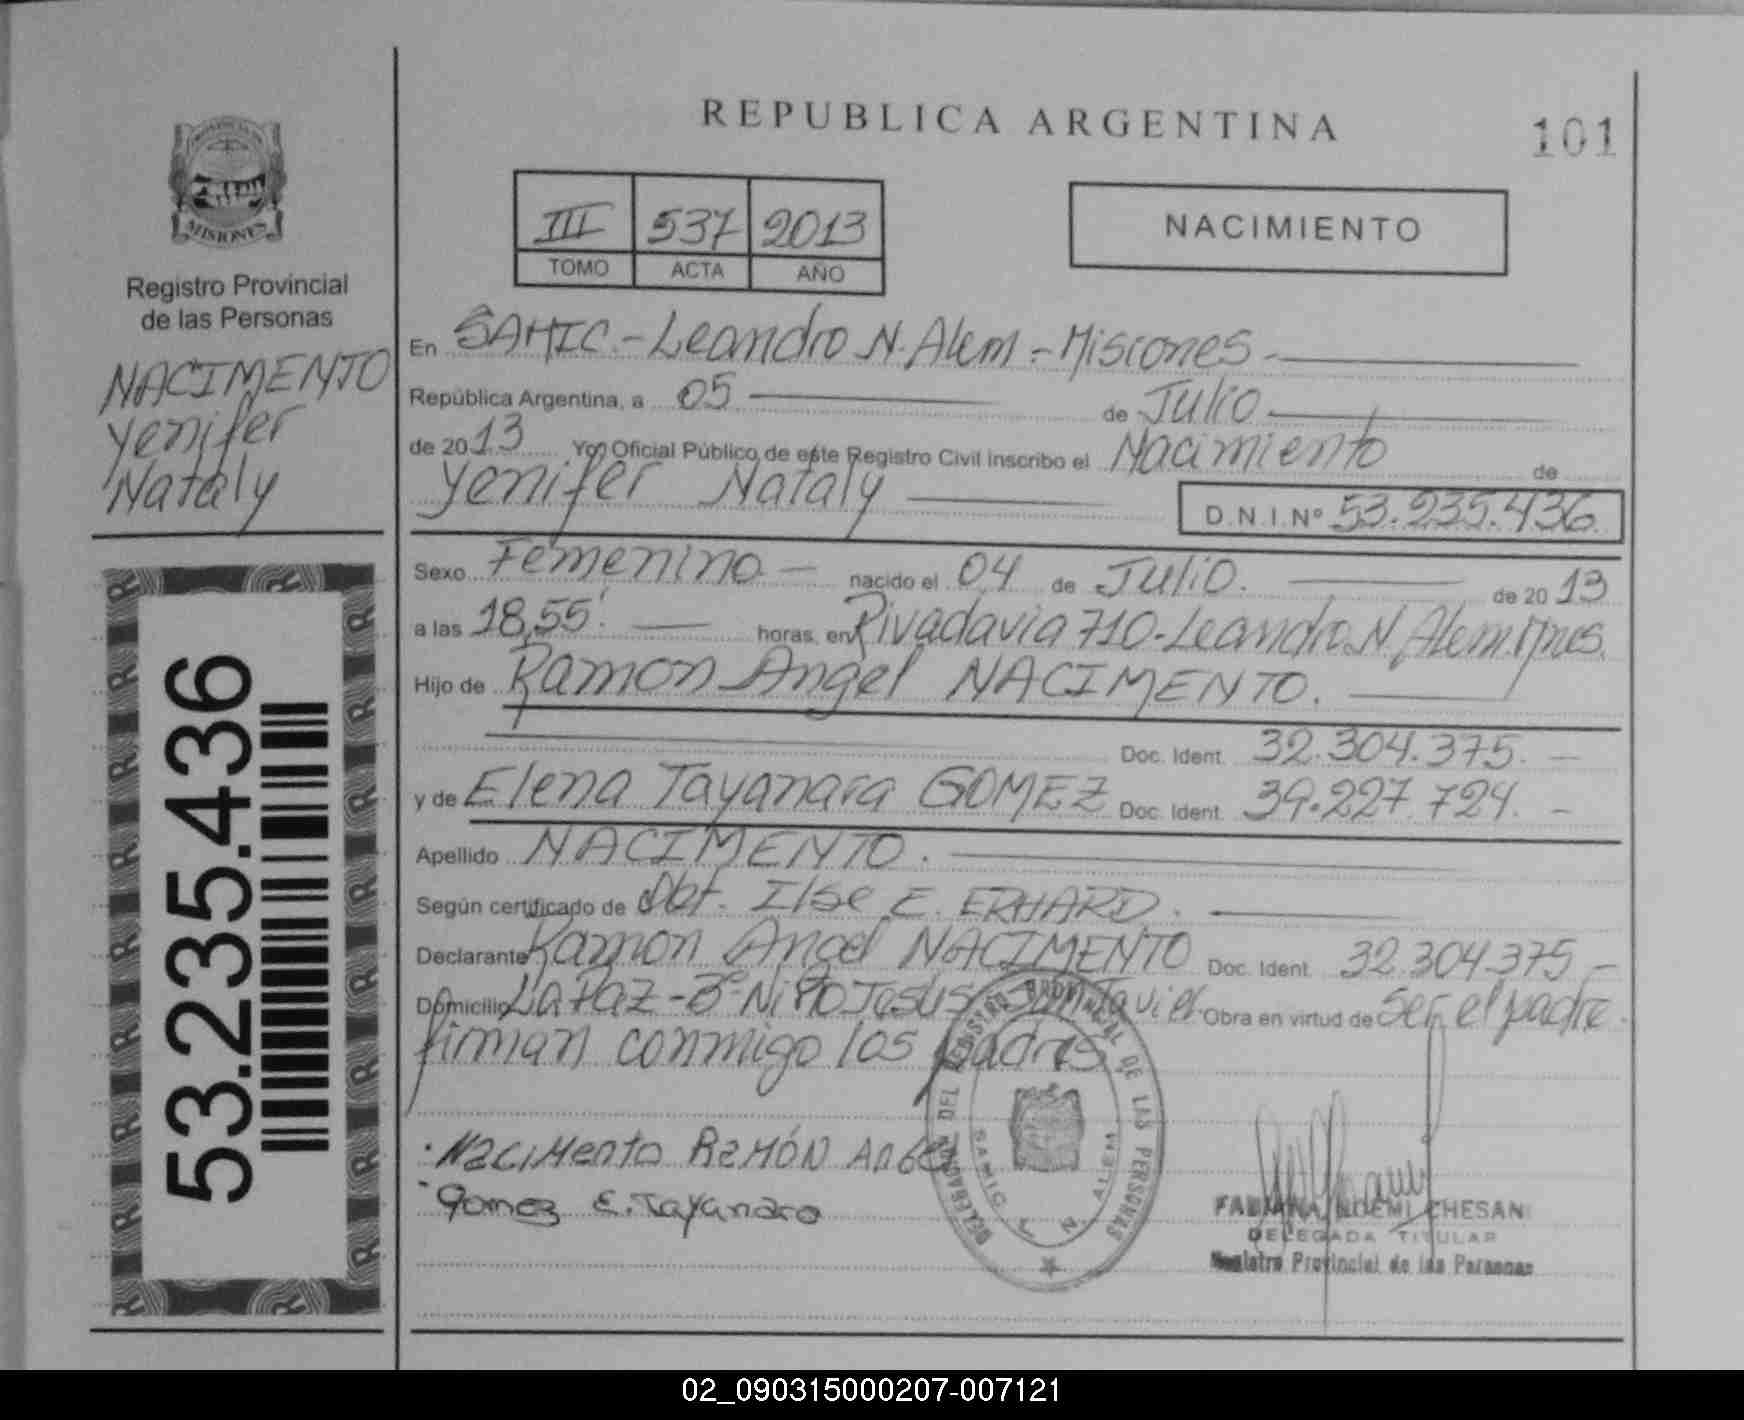 REPUBLICA ARGENTINA
101
PROVINCIA DE
MISIONES
Registro Provincial
de las Personas
NACIMENTO
Yenifer
Nataly
53.235.436
III 537 2013
TOMO ACTA AÑO
NACIMIENTO
En SAMIC.-Leandro N. Alem.-Misiones.
República Argentina, a 05 de Julio
de 2013 Yo, Oficial Público de este Registro Civil inscribo el Nacimiento de
Yenifer Nataly D.N.I.Nº 53.235.436
Sexo Femenino nacido el 04 de Julio. de 2013
a las 18,55'. horas, en Rivadavia 710-Leandro N. Alem. Mnes.
Hijo de Ramon Angel NACIMENTO.
Doc. Ident. 32.304.375.
y de Elena Tayanara GOMEZ Doc. Ident. 39.227.724.
Apellido NACIMENTO.
Según certificado de Obt. Ilse E. ERHARD.
Declarante Ramon Angel NACIMENTO Doc. Ident. 32.304.375
Domicilio La Paz-Bº-Niño Jesus San Javier Obra en virtud de ser el padre.
firman conmigo los padres
Nacimento RAMÓN Angel
Gomez E. Tayanara
DELEGACION DEL REGISTRO PROVINCIAL DE LAS PERSONAS
SAMIC L. N. ALEM
FABIANA NOEMI CHESANI
DELEGADA TITULAR
Registro Provincial de las Personas
02_090315000207-007121